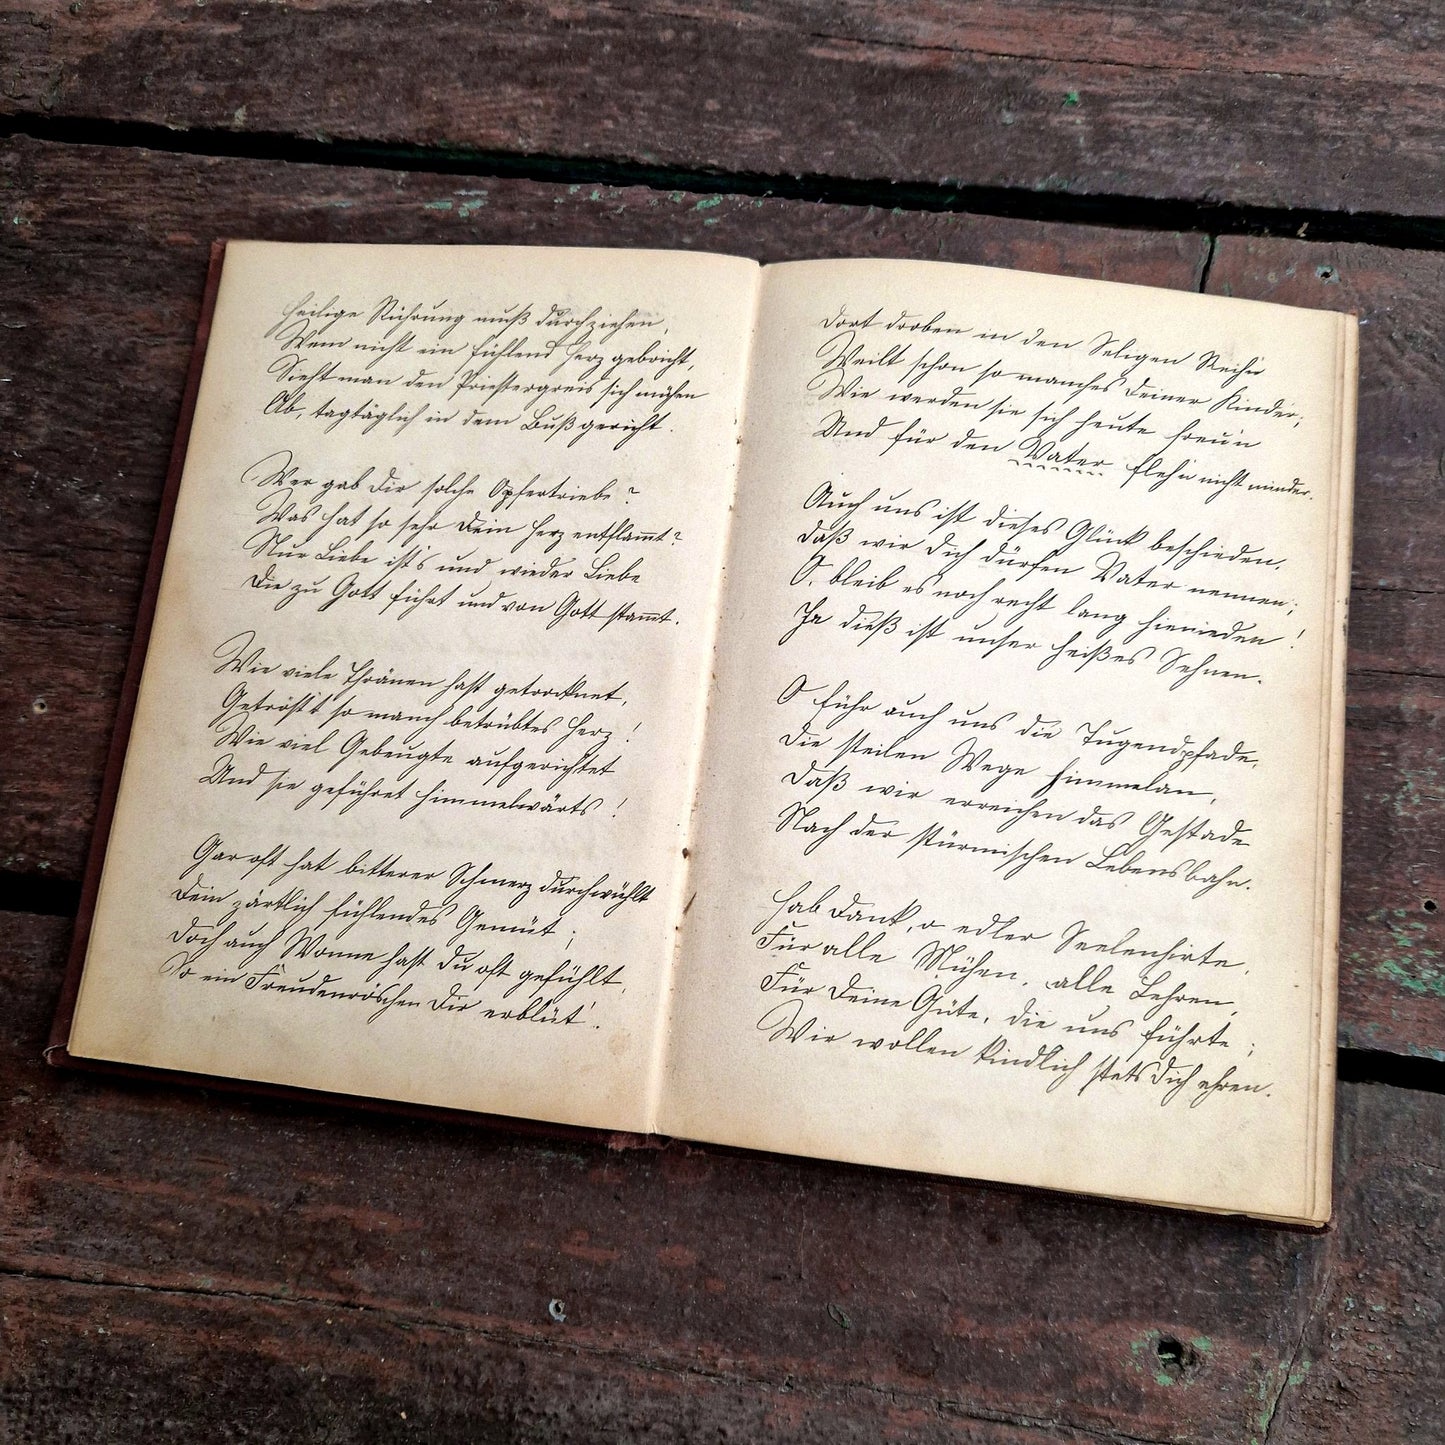 Heilige Rührung muß durchziehen,
Wem nicht ein fühlend Herz gebricht,
Sieht man den Priestergreis sich mühen
Ab, tagtäglich in dem Bußgericht.
Wer gab Dir solche Opfertriebe?
Was hat so sehr Dein Herz entflam̅t?
Nur Liebe ist's und wieder Liebe
Die zu Gott führt und von Gott stam̅t.
Wie viele Thränen hast getrocknet,
Getröst't so manch betrübtes Herz!
Wie viel Gebeugte aufgerichtet
Und sie geführet himmelwärts!
Gar oft hat bitterer Schmerz durchwühlt
Dein zärtlich fühlendes Gemüt;
Doch auch Wonne hast Du oft gefühlt,
So ein Freudenröschen Dir erblüt'.
Dort droben in den Seligen Reih'n
Weilt schon so manches Deiner Kinder;
Wie werden sie sich heute freu'n
Und für den Vater fleh'n nicht minder.
Auch uns ist dieses Glück beschieden,
Daß wir Dich dürfen Vater nennen;
O, bleib es noch recht lang hienieden!
Ja dieß ist unser heißes Sehnen.
O führ auch uns die Tugendpfade,
Die steilen Wege himmelan,
Daß wir erreichen das Gestade
Nach der stürmischen Lebensbahn.
Hab Dank, o edler Seelenhirte,
Für alle Mühen, alle Lehren,
Für Deine Güte, die uns führte;
Wir wollen kindlich stets Dich ehren.